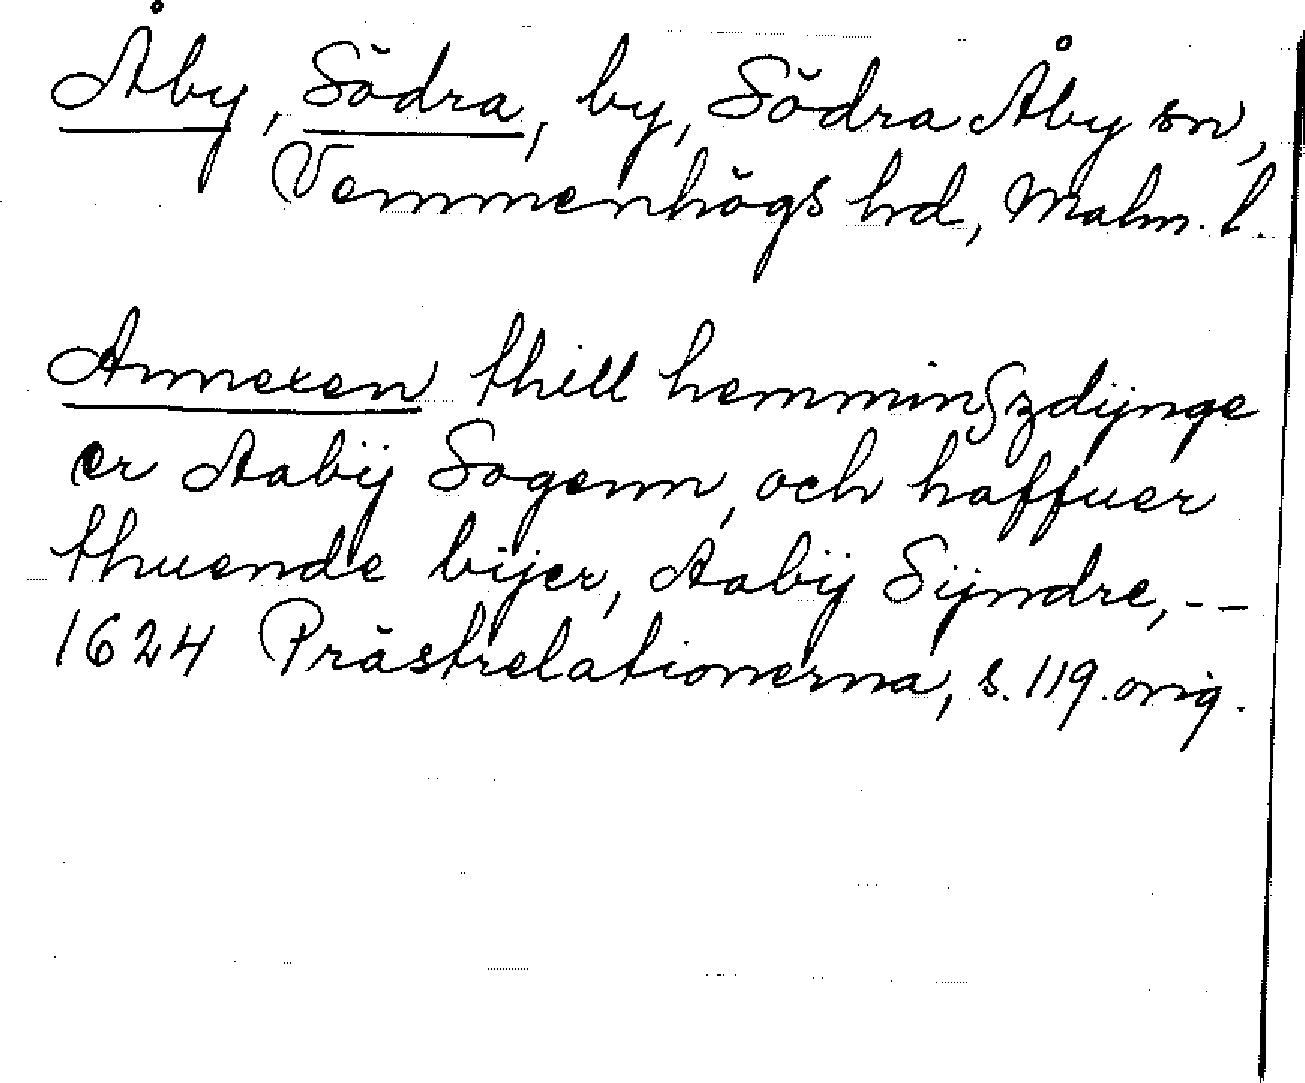 Åby, Södra, by, Södra Åby sn,
Vemmenhögs hd, Malm. l.
Annexen thill hemminſzdÿnge
er Aabÿ Sogenn, och haffuer
thuende bÿer, Aabÿ Sÿndre, --
1624 Prästrelationerna, s. 119. orig.